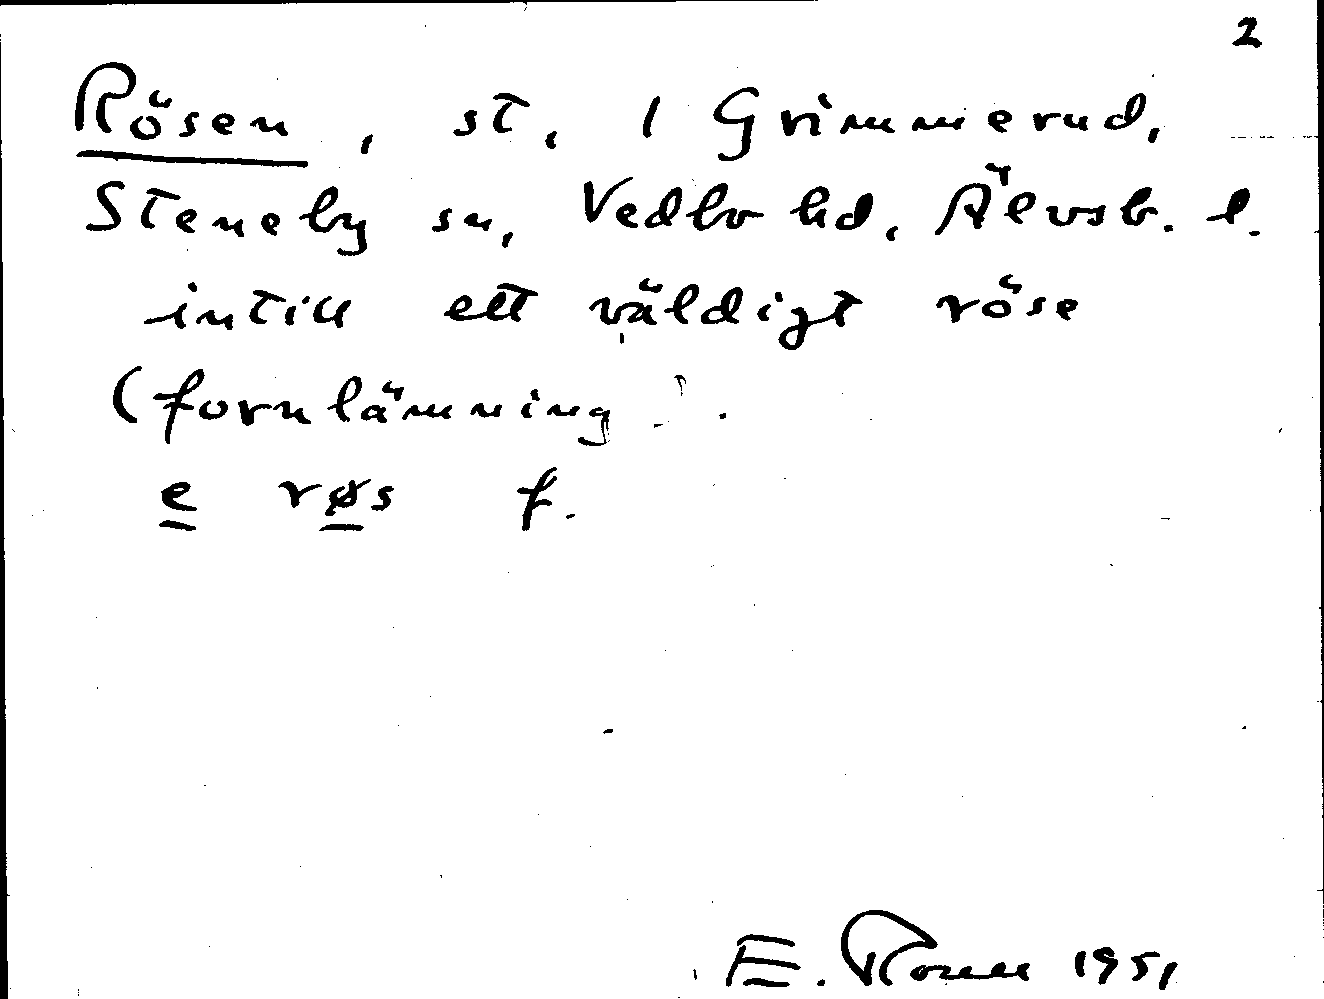 2
Rösen, st. 1 Grimmerud,
Steneby sn, Vedbo hd, Älvsb. l.
intill ett väldigt röse
(fornlämning).
e røs f.
E. 1951